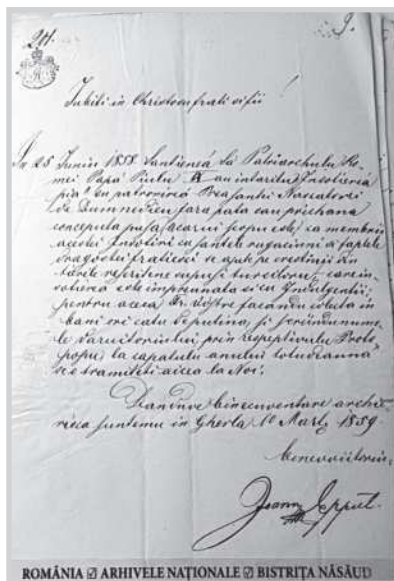 9.
Iubiti in Christosu frati si fii!
In 25 Juniu 1858 Santieneá Sá Patriarchulu Ro-
mei Papá Piulu IX au intaritu Insotierea
piá cu patronirea Preasantei Nascatorei
de Dumnedieu fara pata sau prihana
conceputa pusa (acarui scopu este) ca membrii
acestei Insotiri cu santele rugaciuni si faptele
dragostei fratiesci se ajute pe crestinii din
tierile resaritene supusi turciloru, care in-
sotirea este impreunata si cu Indulgentii;
pentru aceea Fr. vostre facundu colecta in
bani ori catu de putina, si scriindu nume-
le daruitoriului, prin respeptivulu Proto-
popu, la capatulu anului totudeauna
se o tramiteti aicea la Noi.
Dandu ve binecuventare archie-
reica suntemu in Gherla 10 Mart. 1859.
binevoitoriu,
Joann Eppul.
ROMÂNIA ARHIVELE NAȚIONALE BISTRIȚA NĂSĂUD